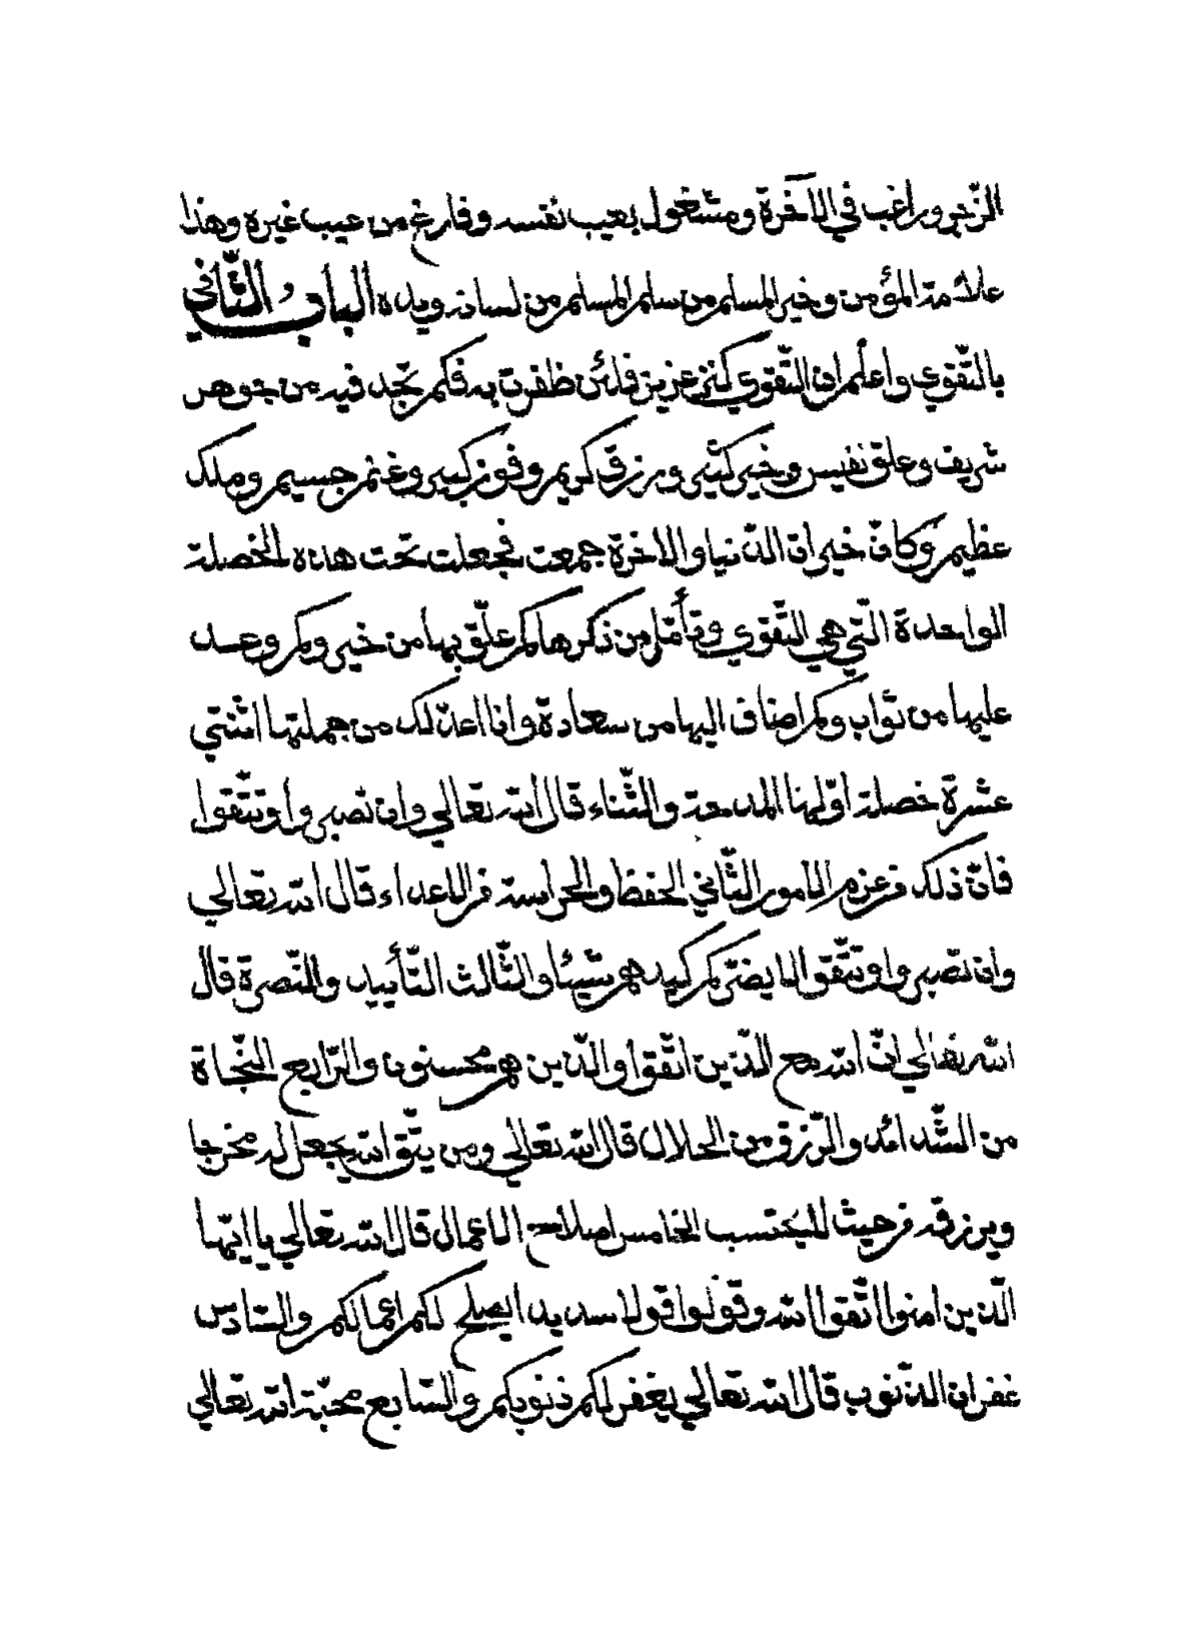 الزجر وراغب في الآخرة ومشغول بعيب نفسه وفارغ من عيب غيره وهذا
علامة المؤمن وخير المسلم من سلم المسلم من لسانه ويده الباب الثّاني
بالتّقوي واعلم ان التّقوي كنز عزيز فلئن ظفرت به فكم تجد فيه من جوهر
شريف وعلق نفيس وخير كثير ورزق كريم وفوز كبير وغنم جسيم وملك
عظيم وكانّ خير ان الدّنيا والاخرة جمعت فجعلت تحت هذه الخصلة
الواحدة الّتي هي التّقوي وتأمّل من ذكرها كم علّق بها من خير وكم وعد
عليها من ثواب وكم اضاف اليها من سعادة وانا اعدّ لك من جملتها اثنتي
عشرة خصلة اوّلها المدحة والثّناء قال الله تعالي وان تصبروا وتتّقوا
فانّ ذلك من عزم الامور الثّاني الحفظ والحراسة من الاعداء قال الله تعالي
وان تصبروا وتتّقوا لا يضرّكم كيدهم شيئا والثّالث التّأييد والنّصرة قال
الله تعالي انّ الله مع الّذين اتّقوا والّذين هم محسنون والرّابع النّجاة
من الشّدائد والرّزق من الحلال قال الله تعالي ومن يتّق الله يجعل له مخرجا
ويرزقه من حيث لا يحتسب الخامس اصلاح الاعمال قال الله تعالي يا ايّها
الّذين امنوا اتّقوا الله وقولوا قولا سديدا يصلح لكم اعمالكم والسّادس
غفران الذّنوب قال الله تعالي يغفر لكم ذنوبكم والسّابع محبّة الله تعالي